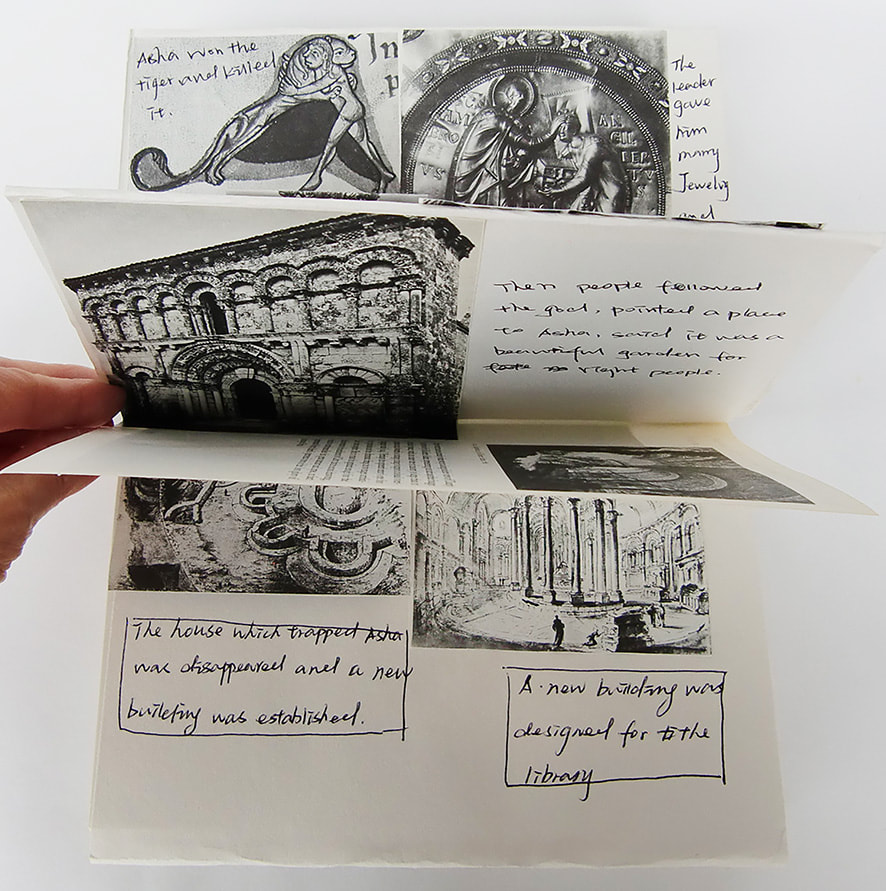 Asha won the
tiger and killed
it.
In
p
The
leader
gave
him
many
Jewelry
and
AN
GIL
BER
TVS
VVS
Then people followed
the god, pointed a place
to Asha, said it was a
beautiful garden for
right people.
The house which trapped Asha
was disappeared and a new
building was established.
A new building was
designed for the
library